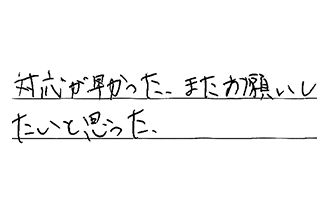 対応が早かった。またお願いし
たいと思った。